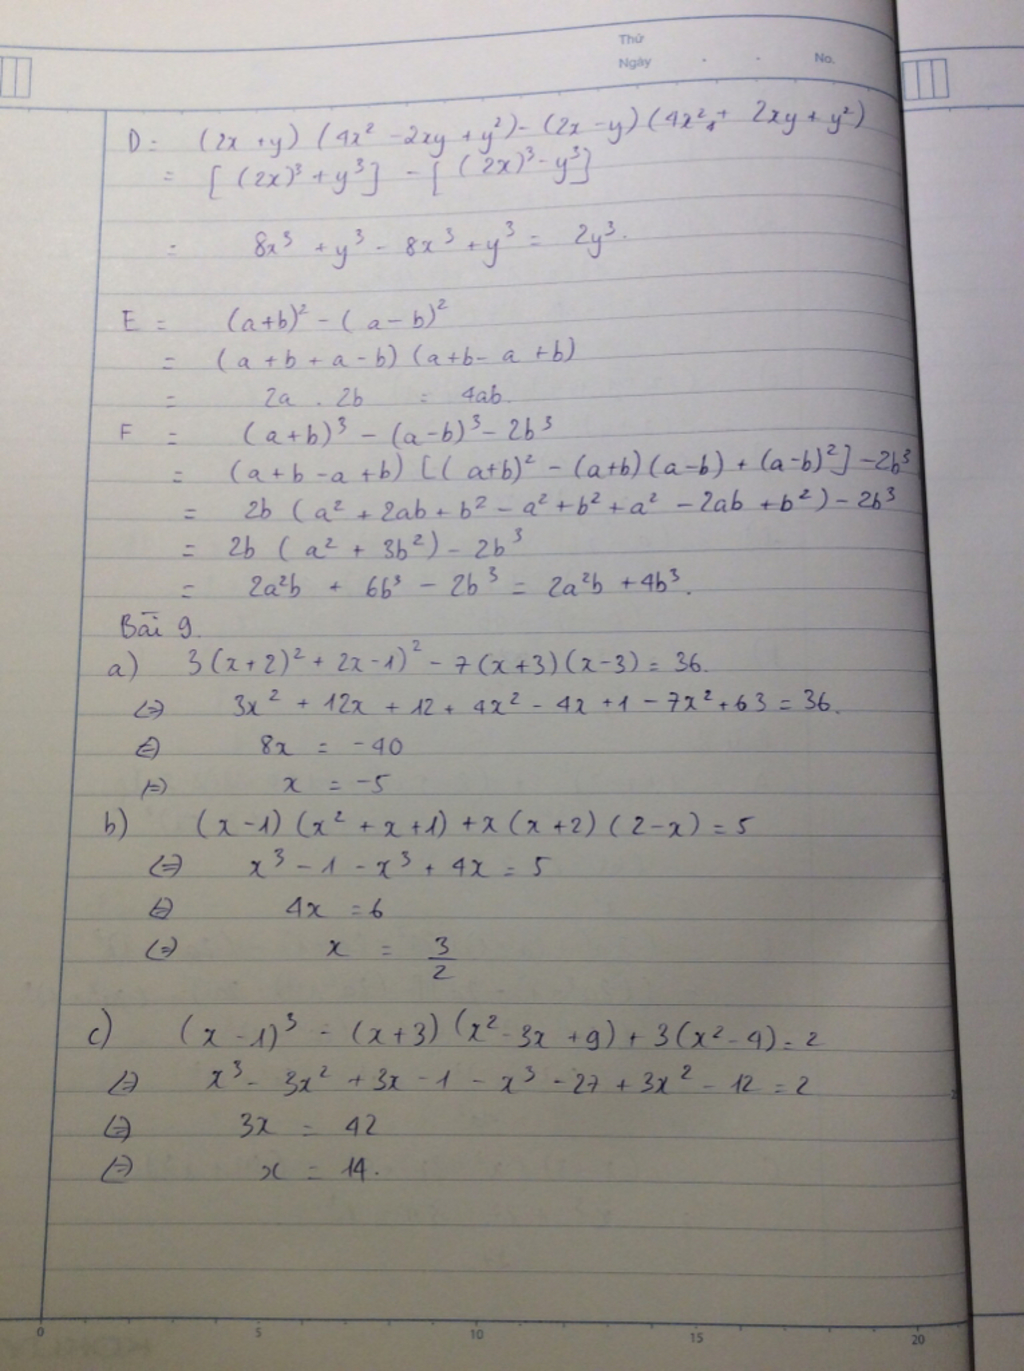 Thứ
Ngày . . No.
D = (2x + y) (4x² - 2xy + y²) - (2x - y) (4x² + 2xy + y²)
= [(2x)³ + y³] - [(2x)³ - y³]
= 8x³ + y³ - 8x³ + y³ = 2y³.
E = (a+b)² - (a - b)²
= (a + b + a - b) (a+b - a + b)
= 2a . 2b = 4ab.
F = (a+b)³ - (a-b)³ - 2b³
= (a+b - a + b) [(a+b)² - (a+b)(a-b) + (a-b)²] - 2b³
= 2b (a² + 2ab + b² - a² + b² + a² - 2ab + b²) - 2b³
= 2b (a² + 3b²) - 2b³
= 2a²b + 6b³ - 2b³ = 2a²b + 4b³.
Bài 9.
a) 3(x+2)² + 2x-1)² - 7(x+3)(x-3) = 36.
<=> 3x² + 12x + 12 + 4x² - 4x + 1 - 7x² + 63 = 36.
<=> 8x = -40
<=> x = -5
b) (x-1) (x² + x + 1) + x(x+2) (2-x) = 5
<=> x³ - 1 - x³ + 4x = 5
<=> 4x = 6
<=> x = 3/2
c) (x-1)³ - (x+3) (x² - 3x + 9) + 3(x² - 4) = 2
<=> x³ - 3x² + 3x - 1 - x³ - 27 + 3x² - 12 = 2
<=> 3x = 42
<=> x = 14.
0 5 10 15 20